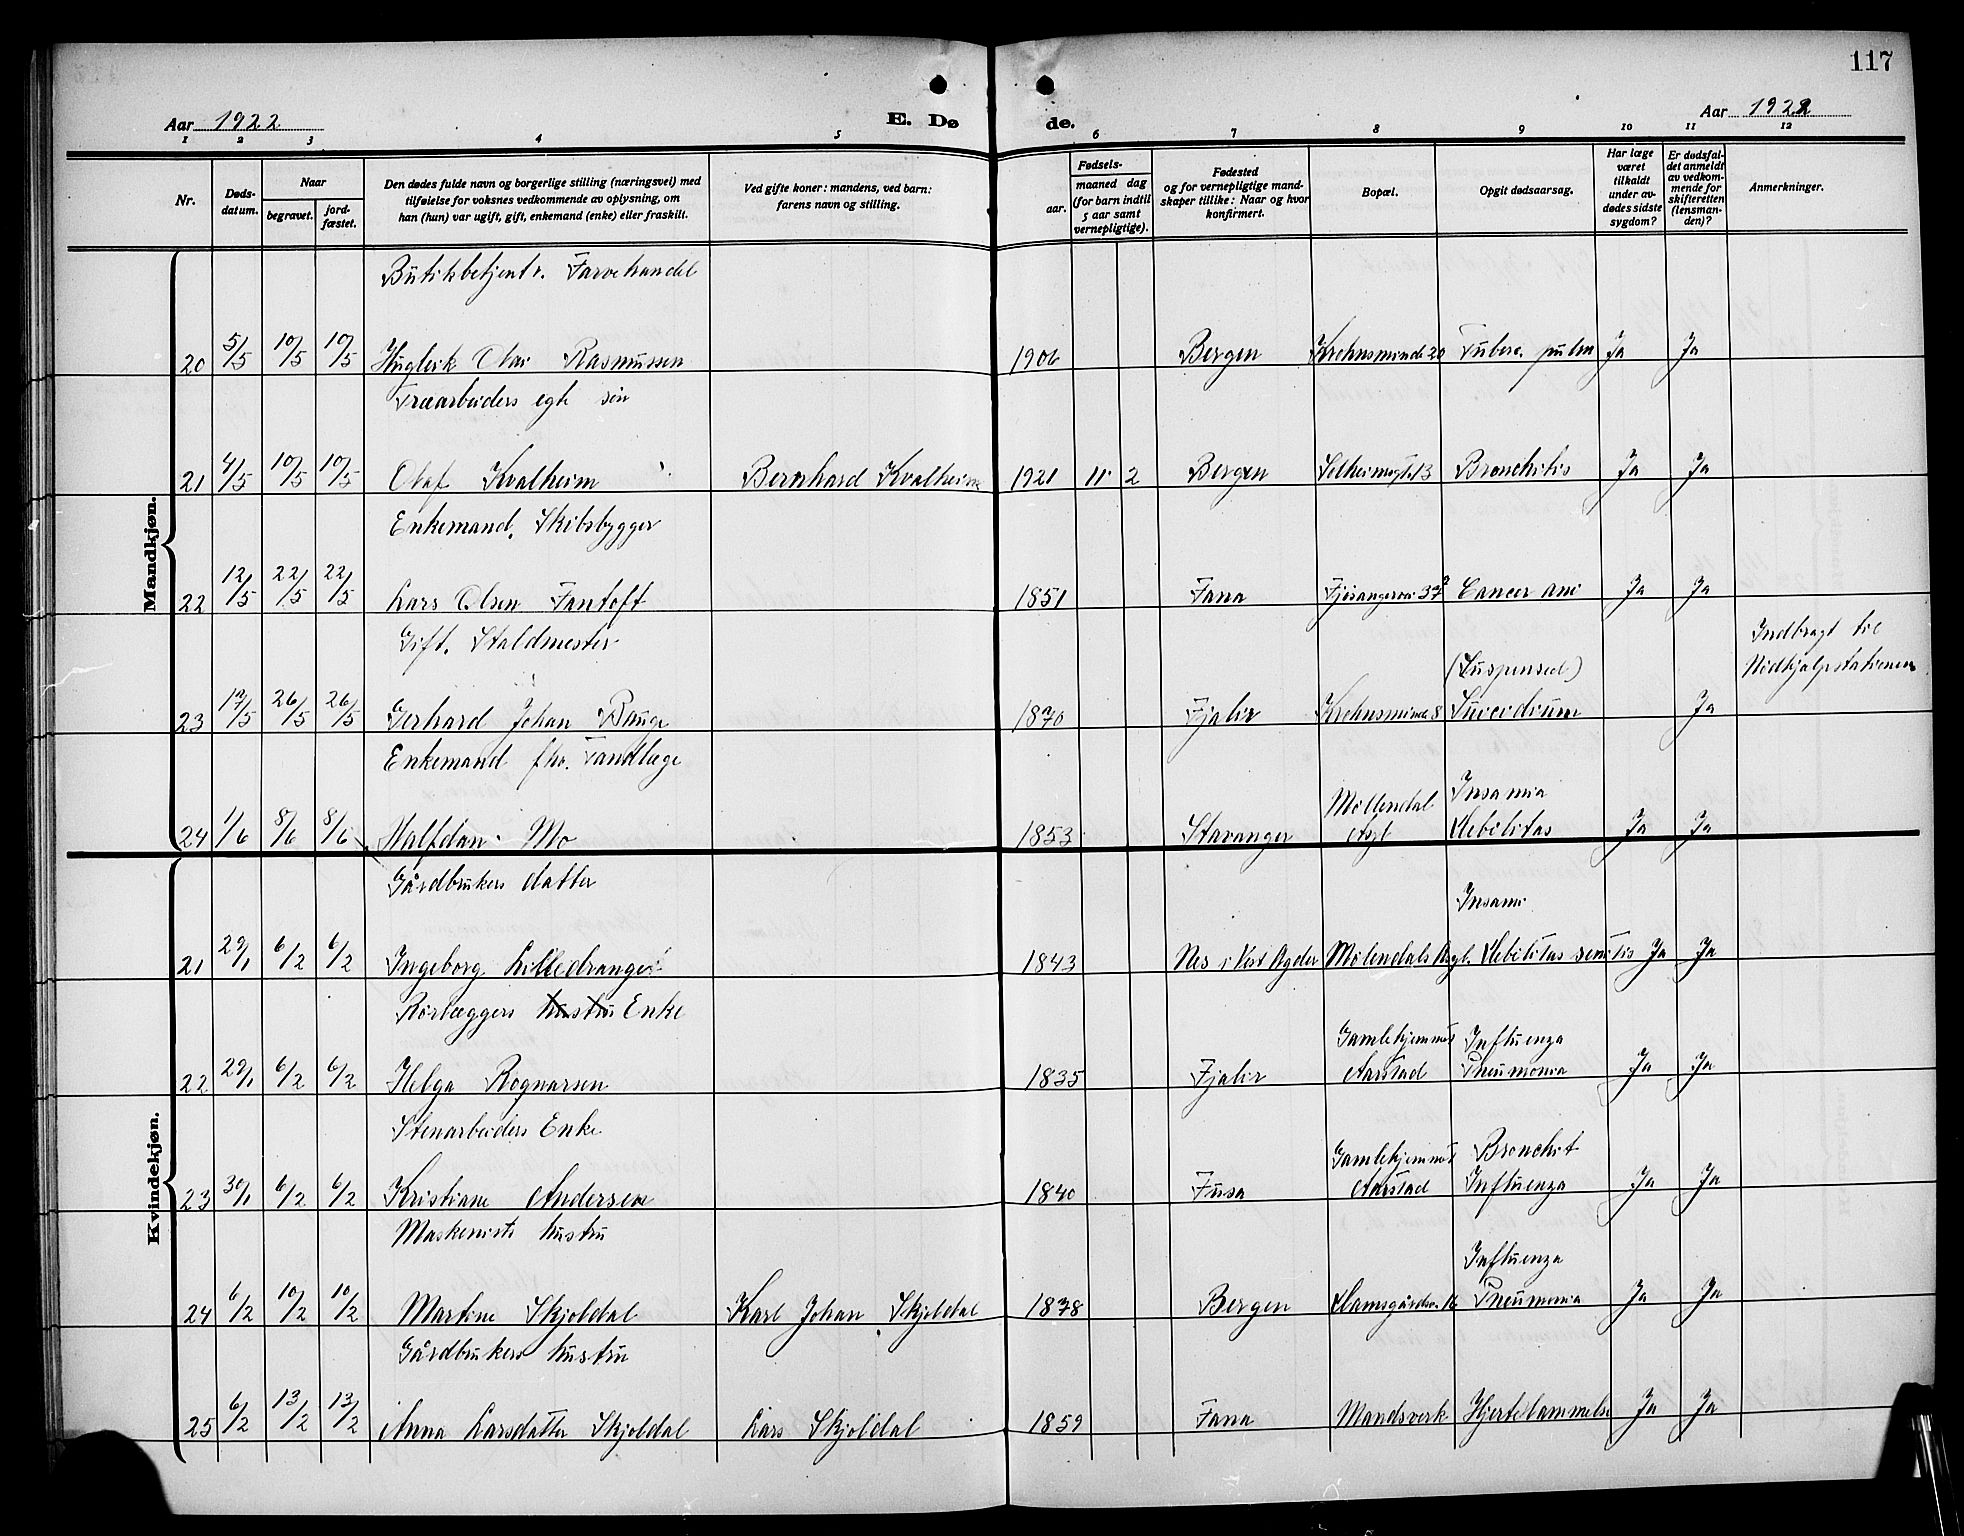 117
Aar 1922
E. Dø
de.
Aar 1922
1 2 3 4 5 6 7 8 9 10 11 12
Nr.
Døds-
datum.
Naar
begravet.
jord-
fæstet.
Den dødes fulde navn og borgerlige stilling (næringsvei) med
tilføielse for voksnes vedkommende av oplysning, om
han (hun) var ugift, gift, enkemand (enke) eller fraskilt.
Ved gifte koner: mandens, ved barn:
farens navn og stilling.
Fødsels-
aar.
maaned dag
(for barn indtil
5 aar samt
vernepligtige).
Fødested
og for vernepligtige mand-
skaper tillike: Naar og hvor
konfirmert.
Bopæl.
Opgit dødsaarsag.
Har læge
været
tilkaldt
under av-
dødes sidste
sygdom?
Er dødsfal-
det anmeldt
av vedkom-
mende for
skifteretten
(lensman-
den)?
Anmerkninger.
Mandkjøn.
Butikbetjent v. Farvehandel
20 5/5 10/5 10/5 Olav Rasmussen 1906 Bergen Krohnsminde 20 Tuberc. pulm Ja Ja
Træarbeiders egte søn
21 4/5 10/5 10/5 Olaf Kvalheim Bernhard Kvalheim 1921 11 2 Bergen Solheimsgt. 13 Bronchitis Ja Ja
Enkemand. Skibsbygger
22 12/5 22/5 22/5 Lars Olsen Fantoft 1851 Fana Fjøsangervei 37 Cancer ani Ja Ja
Gift. Staldmester
(Suspensed)
Indbragt til
Nødhjelpstationen
23 17/5 26/5 26/5 Gerhard Johan Bauge 1870 Fjaler Krohnsminde 8 Suicidium Ja
Enkemand fhv. Tandlæge
Møllendal Insania
24 1/6 8/6 8/6 Halfdan Mo 1853 Stavanger Asyl Debilitas Ja Ja
Kvindekjøn.
Gårdbrukers datter
Insani
21 29/1 6/2 6/2 Ingeborg Lilledranget 1843 Nes i Vest Agder Møllendals Asyl. Debilitas senilis Ja Ja
Rørlæggers hustru Enke
Gamlehjemmet Influenza
22 29/1 6/2 6/2 Helga Rognarsen 1835 Fjaler Aarstad Pneumonia Ja Ja
Stenarbeiders Enke
Gamlehjemmet Bronchit
23 30/1 6/2 6/2 Kristiane Andersen 1840 Fusa Aarstad Influenza Ja Ja
Maskenists hustru
Influenza
24 6/2 10/2 10/2 Martine Skjoldal Karl Johan Skjoldal 1878 Bergen Damsgårdsv. 16 Pneumonia Ja Ja
Gårdbrukers hustru
25 6/2 13/2 13/2 Anna Larsdatter Skjoldal Lars Skjoldal 1859 Fana Mandsverk Hjertelammelse Ja Ja